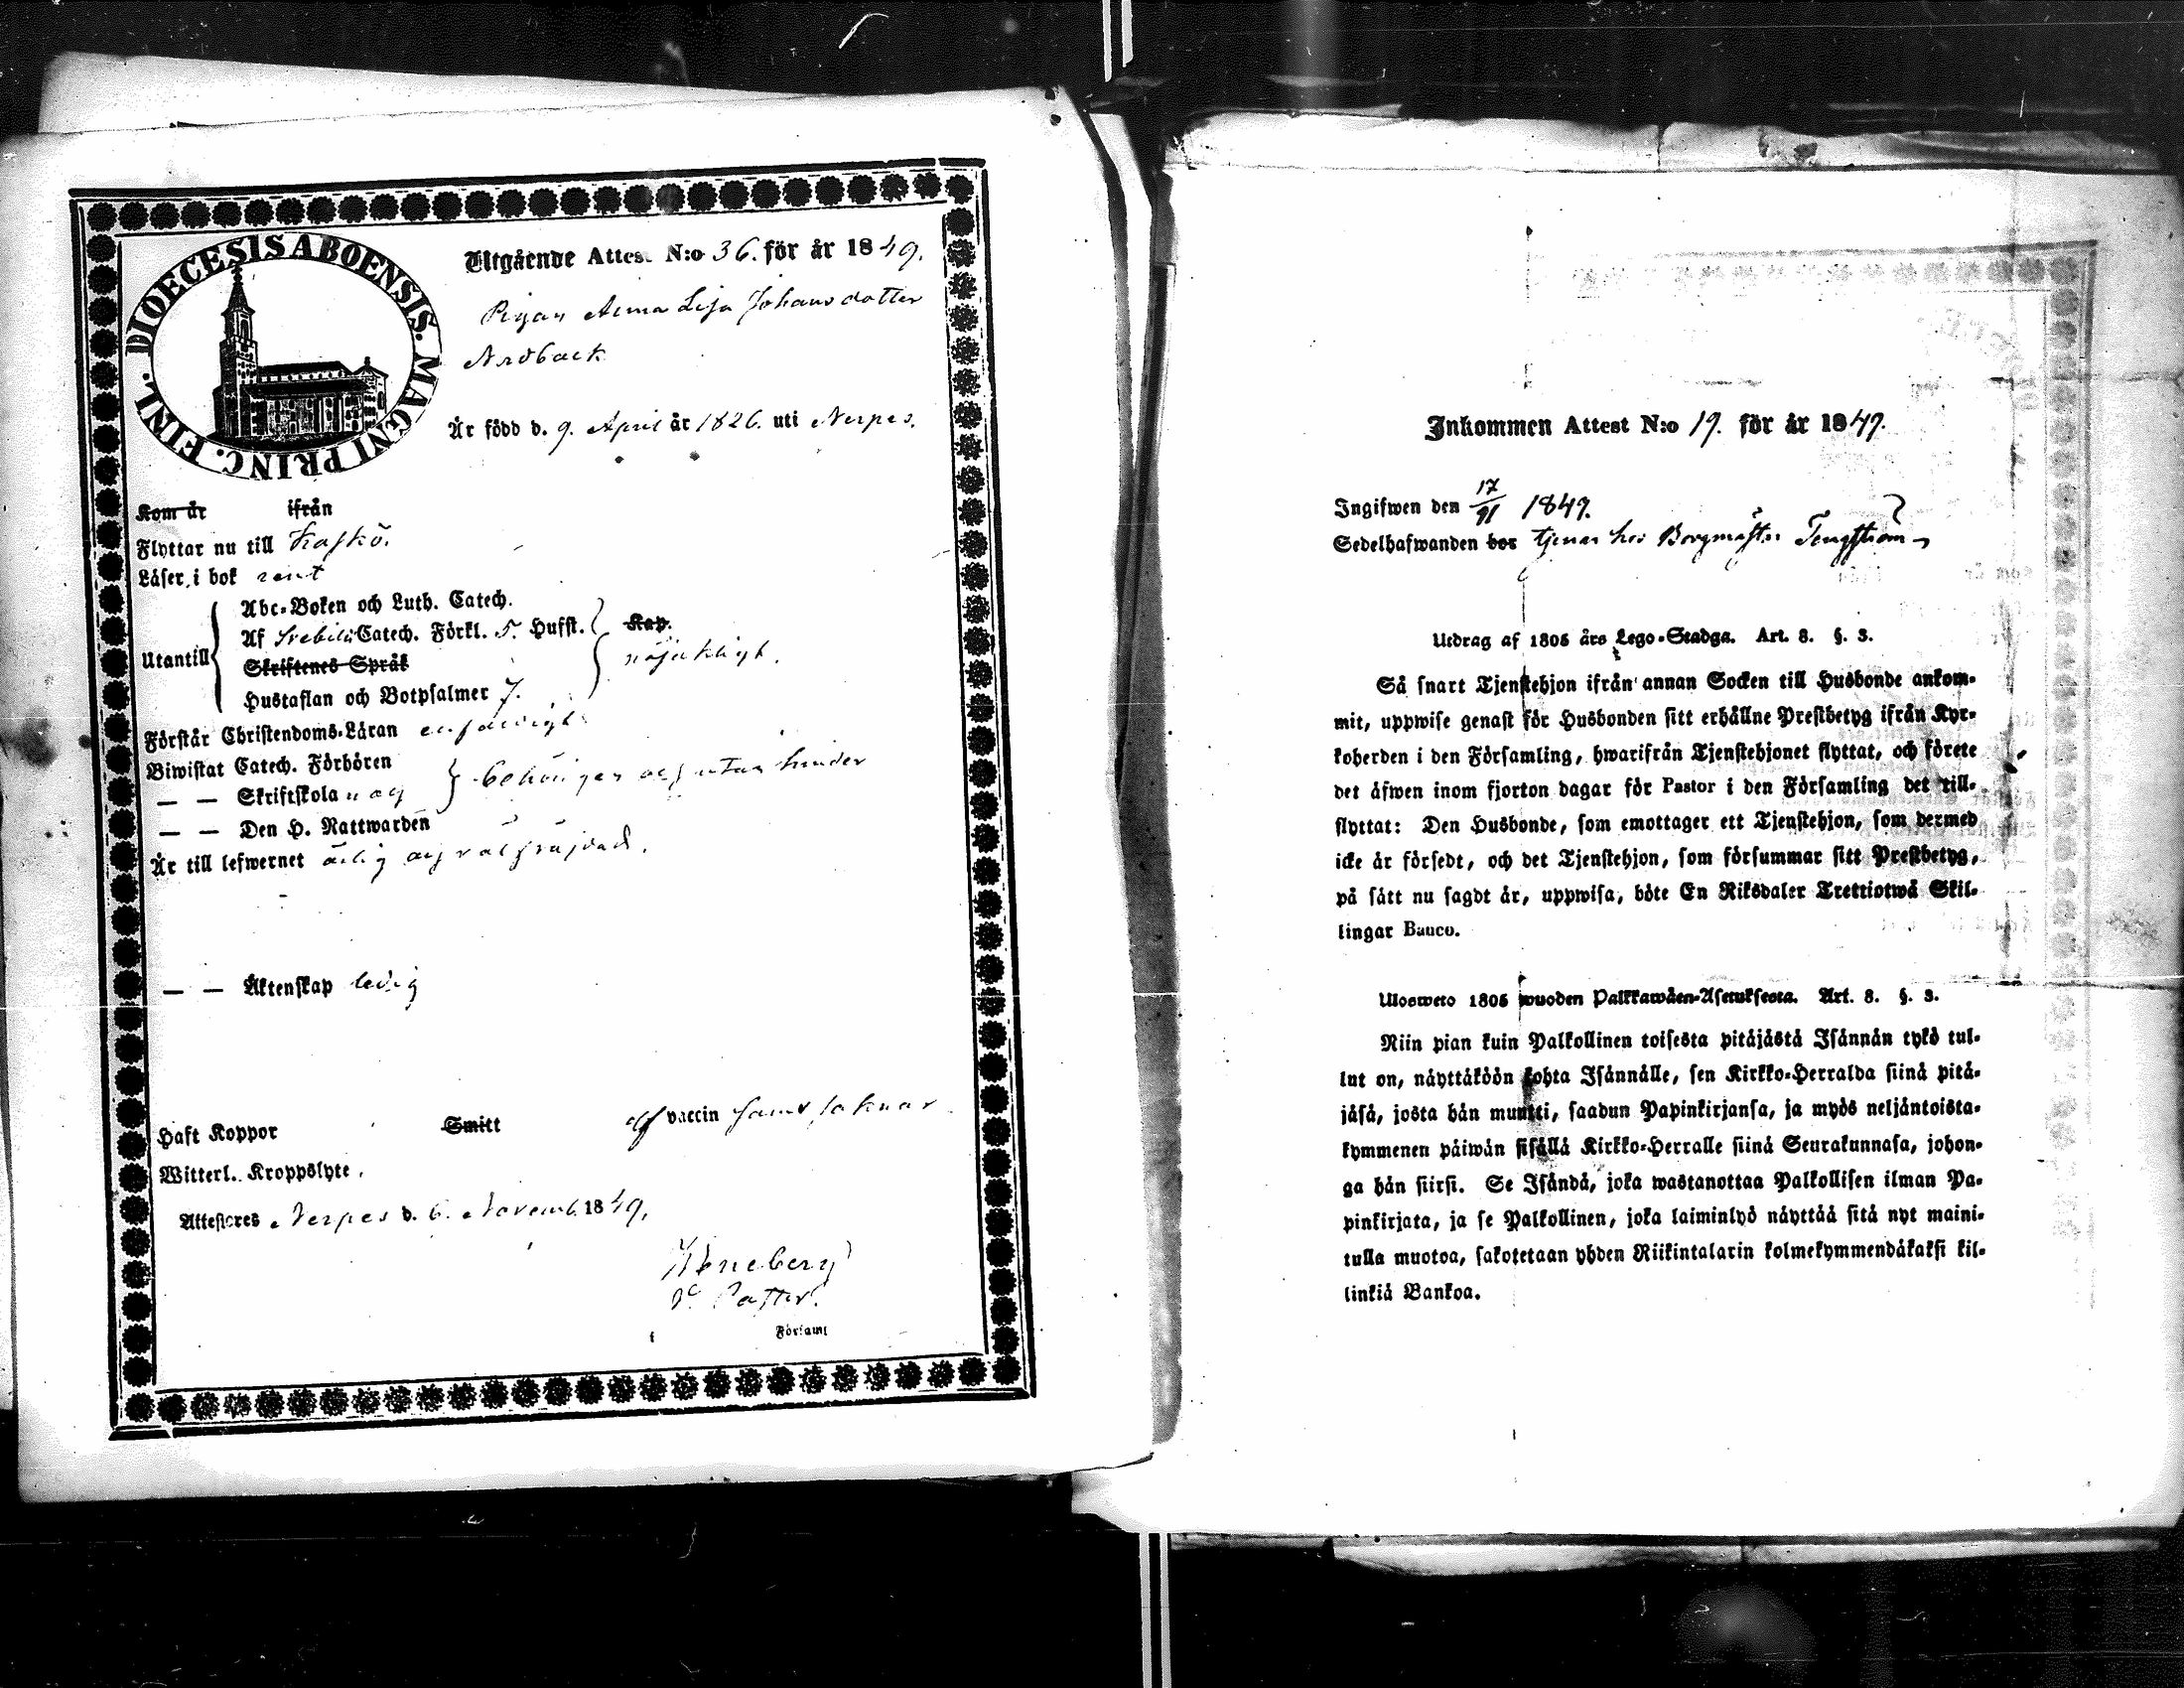 DIOECESIS ABOENSIS. MAGNI PRINC. FINL.
Utgående Attest N:o 36. för år 1849.
Pigan Anna Lisa Johansdotter
Nrdback
Är född d. 9. April år 1826. uti Nerpes.
Kom år ifrån
Flyttar nu till Kaskö.
Läser i bok rent
Utantill
Abc-Boken och Luth. Catech.
Af Svebilii Catech. Förkl. 5. Hufst. Kap.
Skriftenes Språk
nöjaktligt.
Hustaflan och Botpsalmer 7.
Förstår Christendoms-Läran enfaldigt
Biwistat Catech. Förhören
— — Skriftskola och behörigen och utan hinder
— — Den H. Nattwarden
Är till lefwernet ärlig och välfräjdad.
— — Äktenskap ledig
Haft Koppor Smitt af vaccin samt saknar
Witterl. Kroppslyte.
Attesteres Nerpes d. 6. Novemb. 1849.
Vc Pastor.
Församl
Inkommen Attest N:o 19. för år 1849.
Ingifwen den 17/11 1849.
Sedelhafwanden bor tjenar hos Borgmästar Tengström
Utdrag af 1805 års Lego-Stadga. Art. 8. §. 3.
Så snart Tjenstehjon ifrån annan Socken till Husbonde ankom-
mit, uppwise genast för Husbonden sitt erhållne Prestbetyg ifrån Kyr-
koherden i den Församling, hwarifrån Tjenstehjonet flyttat, och förete
det äfwen inom fjorton dagar för Pastor i den Församling det till-
flyttat: Den Husbonde, som emottager ett Tjenstehjon, som dermed
icke är försedt, och det Tjenstehjon, som försummar sitt Prestbetyg,
på sätt nu sagdt är, uppwisa, böte En Riksdaler Trettiotwå Skil-
lingar Banco.
Ulosweto 1805 wuoden Palkkawäen-Asetuksesta. Art. 8. §. 3.
Niin pian kuin Palkollinen toisesta pitäjästä Isännän tykö tul-
lut on, näyttäköön kohta Isännälle, sen Kirkko-Herralda siinä pitä-
jäsä, josta hän muutti, saadun Papinkirjansa, ja myös neljäntoista-
kymmenen päiwän sisällä Kirkko-Herralle siinä Seurakunnasa, johon-
ga hän siirsi. Se Isändä, joka wastanottaa Palkollisen ilman Pa-
pinkirjata, ja se Palkollinen, joka laiminlyö näyttää sitä nyt maini-
tulla muotoa, sakotetaan yhden Riikintalarin kolmekymmendäkaksi kil-
linkiä Bankoa.